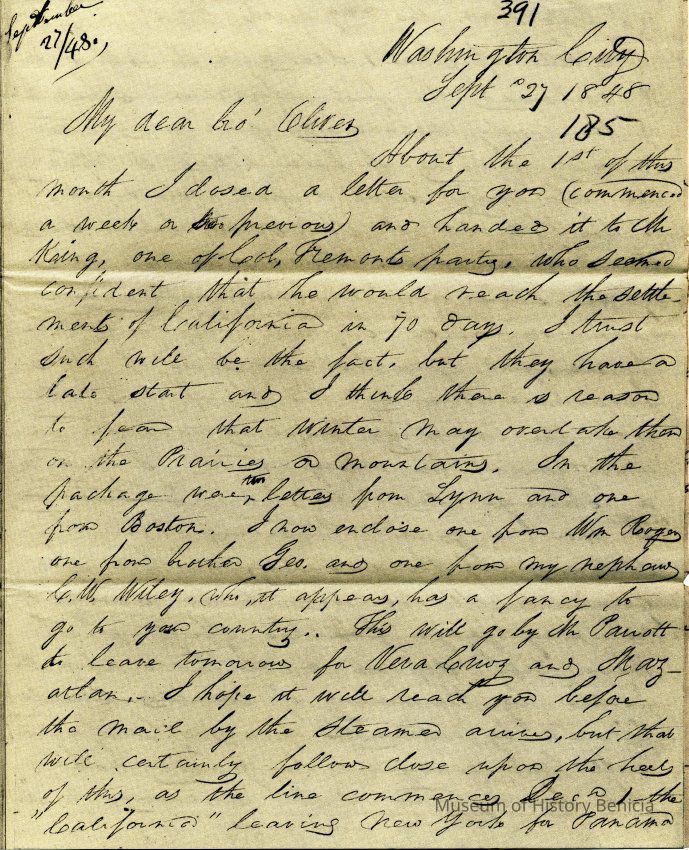 September
27/48.
391
Washington City
Sept 27 1848
185
My dear bro' Oliver
About the 1st of this
month I closed a letter for you (commenced
a week or two previous) and handed it to Mr
King, one of Col. Fremonts party, who seemed
confident that he would reach the settle-
ments of California in 70 days. I trust
such will be the fact, but they have a
late start and I think there is reason
to fear that winter may overtake them
on the Prairies or mountains. In the
package were two letters from Lynn and one
from Boston. I now enclose one from Wm Rogers
one from brother Geo. and one from my nephew
C. W. Wiley, who, it appears, has a fancy to
go to your country.. This will go by Mr Parrott
to leave tomorrow for Vera Cruz and Maz-
atlan. I hope it will reach you before
the mail by the steamer arrives, but that
will certainly follow close upon the heels
of this, as the line commences Dec. 1 the
"California" leaving New York for Panama
Museum of History Benicia